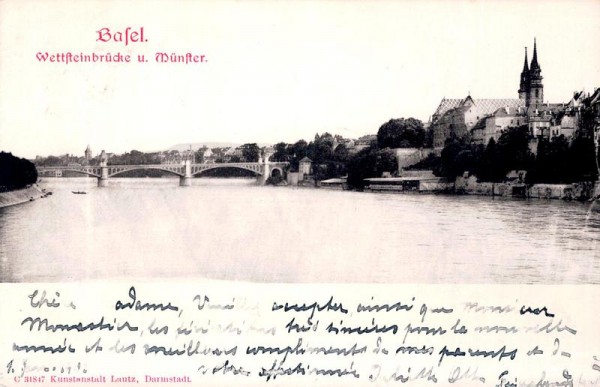 Basel.
Wettsteinbrücke u. Münster.
Chère adame, Veuillez accepter ainsi que Monsieur
Monastier, les très sincères pour la nouvelle
année et des meilleurs compliments de mes parents et de
votre affectionnée
C 3181/7 Kunstanstalt Lautz, Darmstadt.